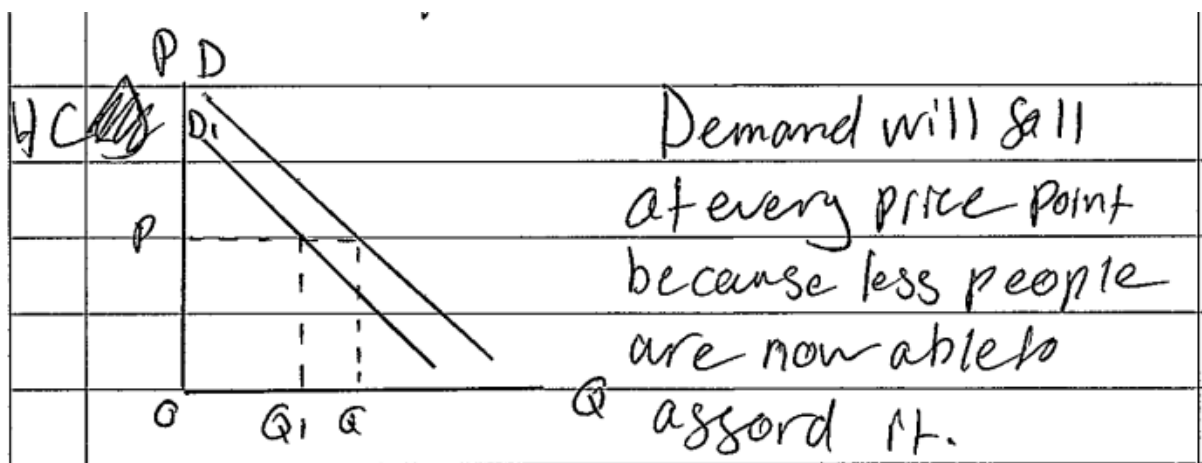 P D
4C
D1
Demand will fall
at every price point
P
because less people
are now able to
O Q1 Q Q
afford it.